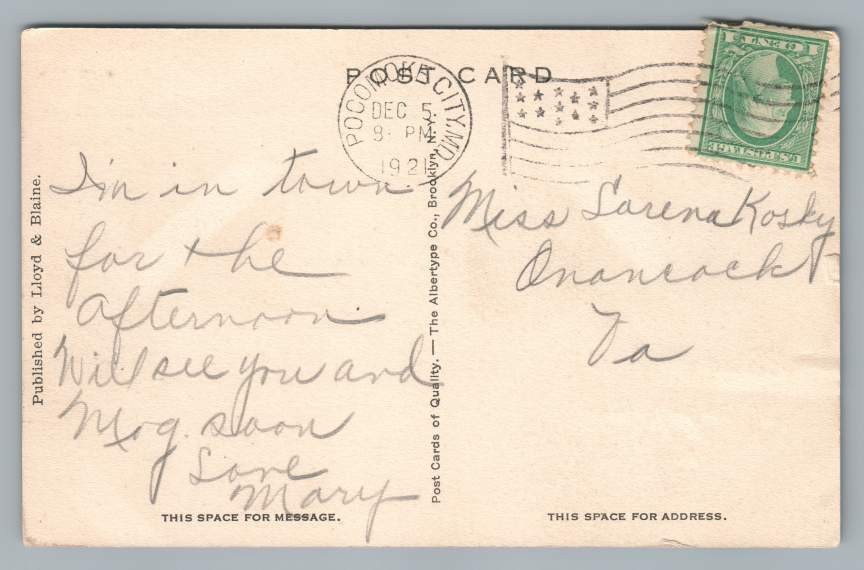 POST CARD
POCOMOKE CITY, MD.
DEC 5
9- PM
1921
1 CENT 1
U.S. POSTAGE
Published by Lloyd & Blaine.
I'm in town
for the
afternoon.
Will see you and
Mog. soon
Love
Mary
THIS SPACE FOR MESSAGE.
Post Cards of Quality. — The Albertype Co., Brooklyn, N. Y.
Miss Lorena Kosky
Onancock
Va
THIS SPACE FOR ADDRESS.